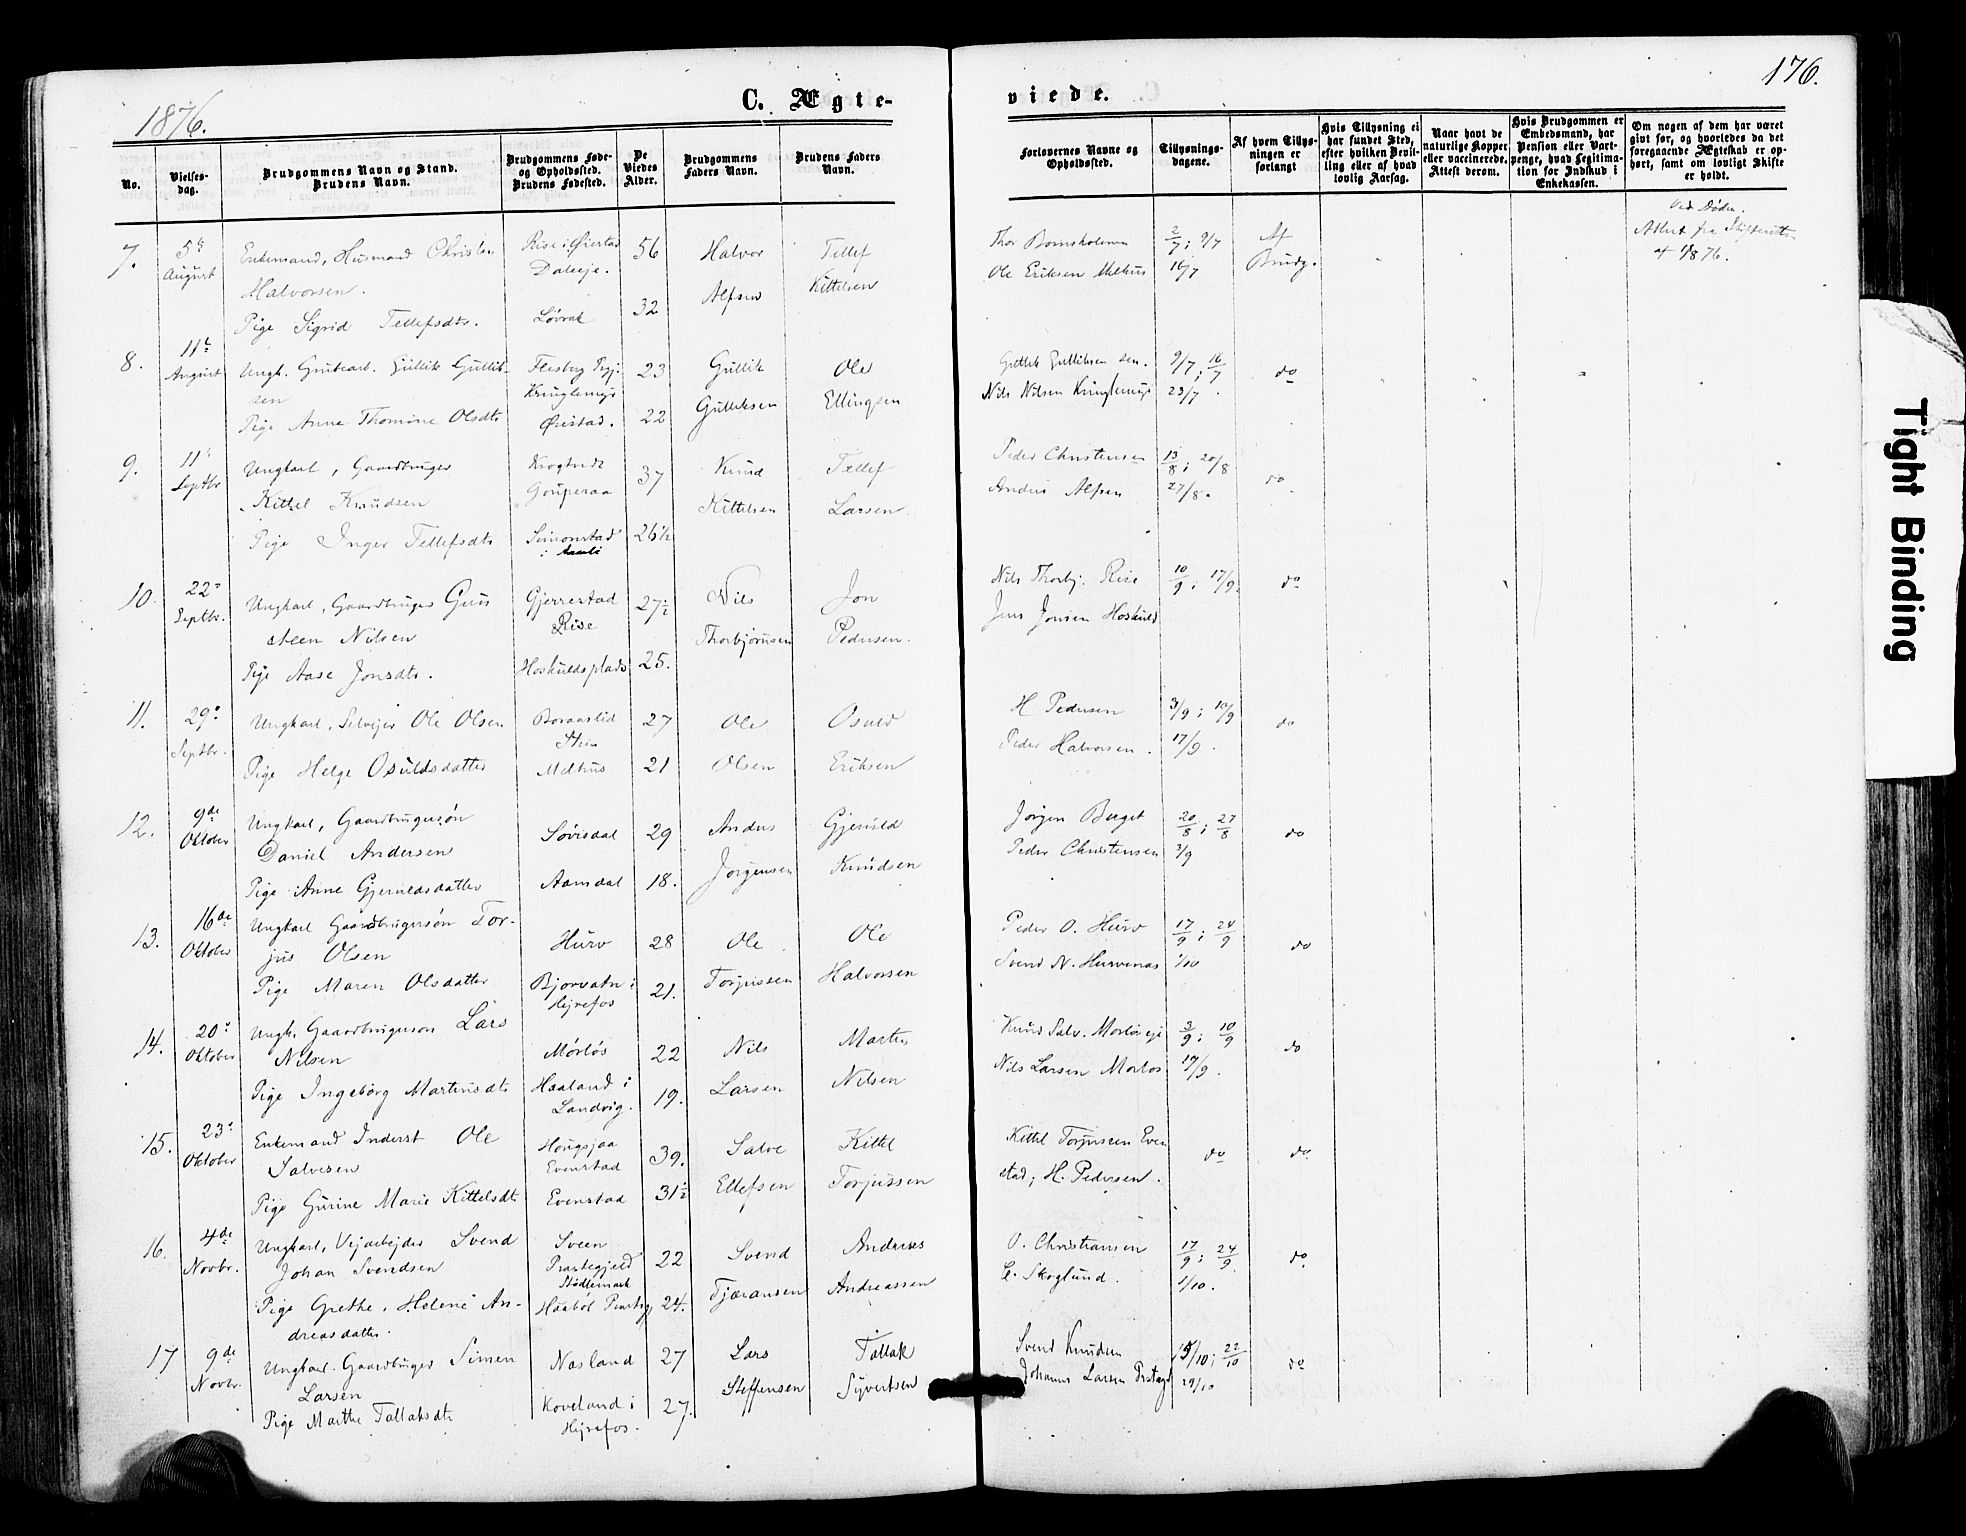 1876.
C. Ægte-
No.
Vielses-
dag.
Brudgommens Navn og Stand.
Brudens Navn.
Brudgommens Føde-
og Opholdssted.
Brudens Fødested.
De
Viedes
Alder.
Brudgommens
Faders Navn.
Brudens Faders
Navn.
7.
5te
August
Enkemand, Husmand Christen
Halvorsen.
Pige Sigrid Tellefsdtr.
Rise i Øiestad
Daleeje.
Løvrak
56
32
Halvor
Alfsen
Tellef
Kittelsen
8.
11te
August
Ungk. Grubearb. Gullik Gullik-
sen
Pige Anne Thomine Olsdtr
Flesberg Prgj.
Kringlemyr
Øiestad.
23
22
Gullik
Gulliksen
Ole
Ellingsen
9.
11te
Septbr
Ungkarl, Gaardbruger
Kittel Knudsen
Pige Inger Tellefsdtr
Krogtvedt
Gouperaa
Simonstad
i Aamli
37
26½
Knud
Kittelsen
Tellef
Larsen.
10.
22de
Septbr.
Ungkarl, Gaardbruger Gun
steen Nilsen
Pige Aase Jonsdtr.
Gjerrestad
Rise
Hoskuldsplads
27½
25.
Nils
Thorbjørnsen
Jon
Pedersen.
11.
29de
Septbr.
Ungkarl, Selvejer Ole Olsen
Pige Helge Osuldsdatter
Boraaslid
Stien
Melhus
27
21
Ole
Olsen
Osuld
Eriksen
12.
9de
Oktober
Ungkarl, Gaardbrugersøn
Daniel Andersen
Pige Anne Gjeruldsdatter
Løvisdal
Aamdal
29
18.
Anders
Jørgensen
Gjeruld
Knudsen
13.
16de
Oktober
Ungkarl Gaardbrugersøn Tor-
jus Olsen
Pige Maren Olsdatter
Hurv
Bjorvatn i
Hejrefos
28
21.
Ole
Torjussen
Ole
Halvorsen
14.
20de
Oktober
Ungk. Gaardbrugerson Lars
Nilsen
Pige Ingeborg Martinsdtr
Mørløs
Haaland i
Landvig.
22
19.
Nils
Larsen
Marten
Nilsen
15.
23de
Oktober
Enkemand Inderst Ole
Salvesen
Pige Gurine Marie Kittelsdtr
Hougsjaa
Evenstad
Evenstad
39.
31½
Salve
Ellefsen
Kittel
Torjussen
16.
4de
Novbr.
Ungkarl, Vejarbejder Svend
Johan Svendsen
Pige Grethe Helene An-
dreasdatter.
Sveen
Præstegjeld
Stødlemark
Haabøl Præstegj
22
24.
Svend
Tjæransen
Andreas
Andreassen
17
9de
Novbr.
Ungkarl Gaardbruger Simen
Larsen
Pige Marthe Tallaksdtr
Nasland
Koveland i
Hejrefos.
27
27.
Lars
Steffensen
Tallak
Syvertsen
176.
viede.
Forlovernes Navne og
Opholdssted.
Tillysnings-
dagene.
Af hvem Tillys-
ningen er
forlangt
Hvis Tillysning ei
har fundet Sted,
efter hvilken Bevil-
ling eller af hvad
lovlig Aarsag.
Naar havt de
naturlige Kopper
eller vaccinerede.
Attest derom.
Hvis Brudgommen er
Embedsmand, har
Pension eller Vart-
penge, hvad Legitima-
tion for Indskud i
Enkekassen.
Om nogen af dem har været
gift før, og hvorledes da det
foregaaende Ægteskab er op-
hørt, samt om lovligt Skifte
er holdt.
Thor Bomsholmen
Ole Eriksen Melhus
2/7; 9/7
16/7
Af
Brudg.
Ved Døden.
Attest fra Skifteretten
Gullik Gulliksen sen.
Nils Nilsen Kringlemyr
9/7; 16/7
23/7.
do
Peder Christensen
Anders Alfsen
13/8; 20/8
27/8.
do
Nils Thorbj. Rise
Jens Jonsen Hoskuld
10/9; 17/9
do
H Pedersen
Peder Halvorsen.
3/9; 10/9
17/9.
do
Jørgen Berget
Peder Christensen
20/8; 27/8
3/9
do
Peder O. Hurv
Svend N. Hurvenes
17/9; 24/9
1/10
do
Knud Salv. Mørløseje
Nils Larsen Morløs
3/9; 10/9
17/9.
do
Kittel Torjussen Even
stad; H. Pedersen.
do
do
O. Christiansen
G. Skoglund.
17/9; 24/9
1/10.
do
Svend Knudsen
Johannes Larsen Prstegd
15/10; 22/10
29/10
do
Tight Binding